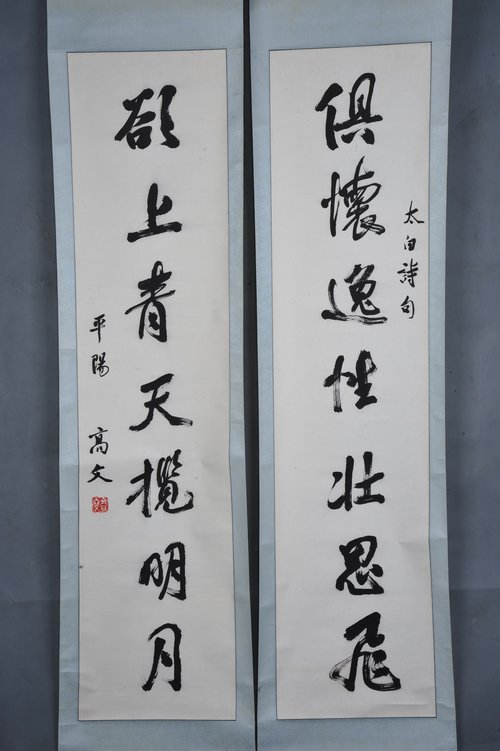 俱懷逸性壯思飛
太白詩句
欲上青天攬明月
平陽 高文